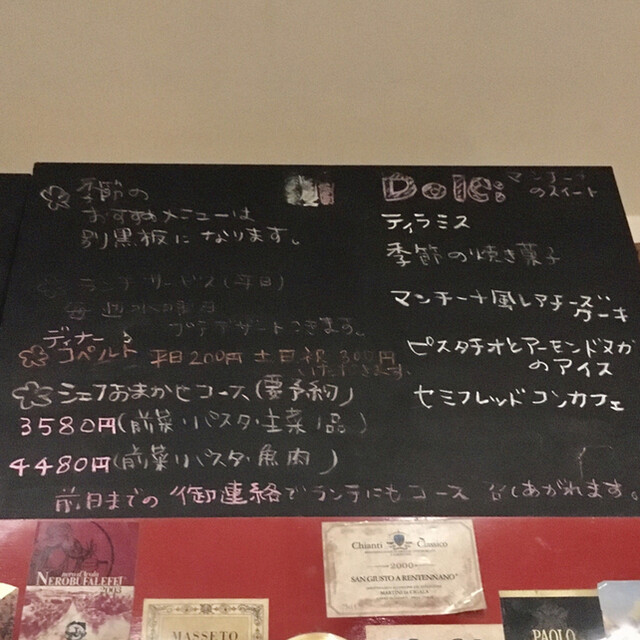 季節の
おすすめメニューは
別黒板になります。
ランチサービス(平日)
毎週水曜日
プチデザートつきます。
ディナー
コペルト 平日200円 土日祝 300円
いただきます
シェフおまかせコース(要予約)
3580円(前菜・パスタ・主菜1品)
4480円(前菜・パスタ・魚・肉)
前日までの御連絡でランチにもコース 召しあがれます。
Dolci マンチーナ
のスイート
ティラミス
季節の焼き菓子
マンチーナ風レアチーズ
ケーキ
ピスタチオとアーモンドヌガー
のアイス
セミフレッドコンカフェ
nero d'Avola
NEROBUFALEFFJ
2003
MASSETO
Chianti Classico
2000
SAN GIUSTO A RENTENNANO
MARTINI DI CIGALA
PAOLO